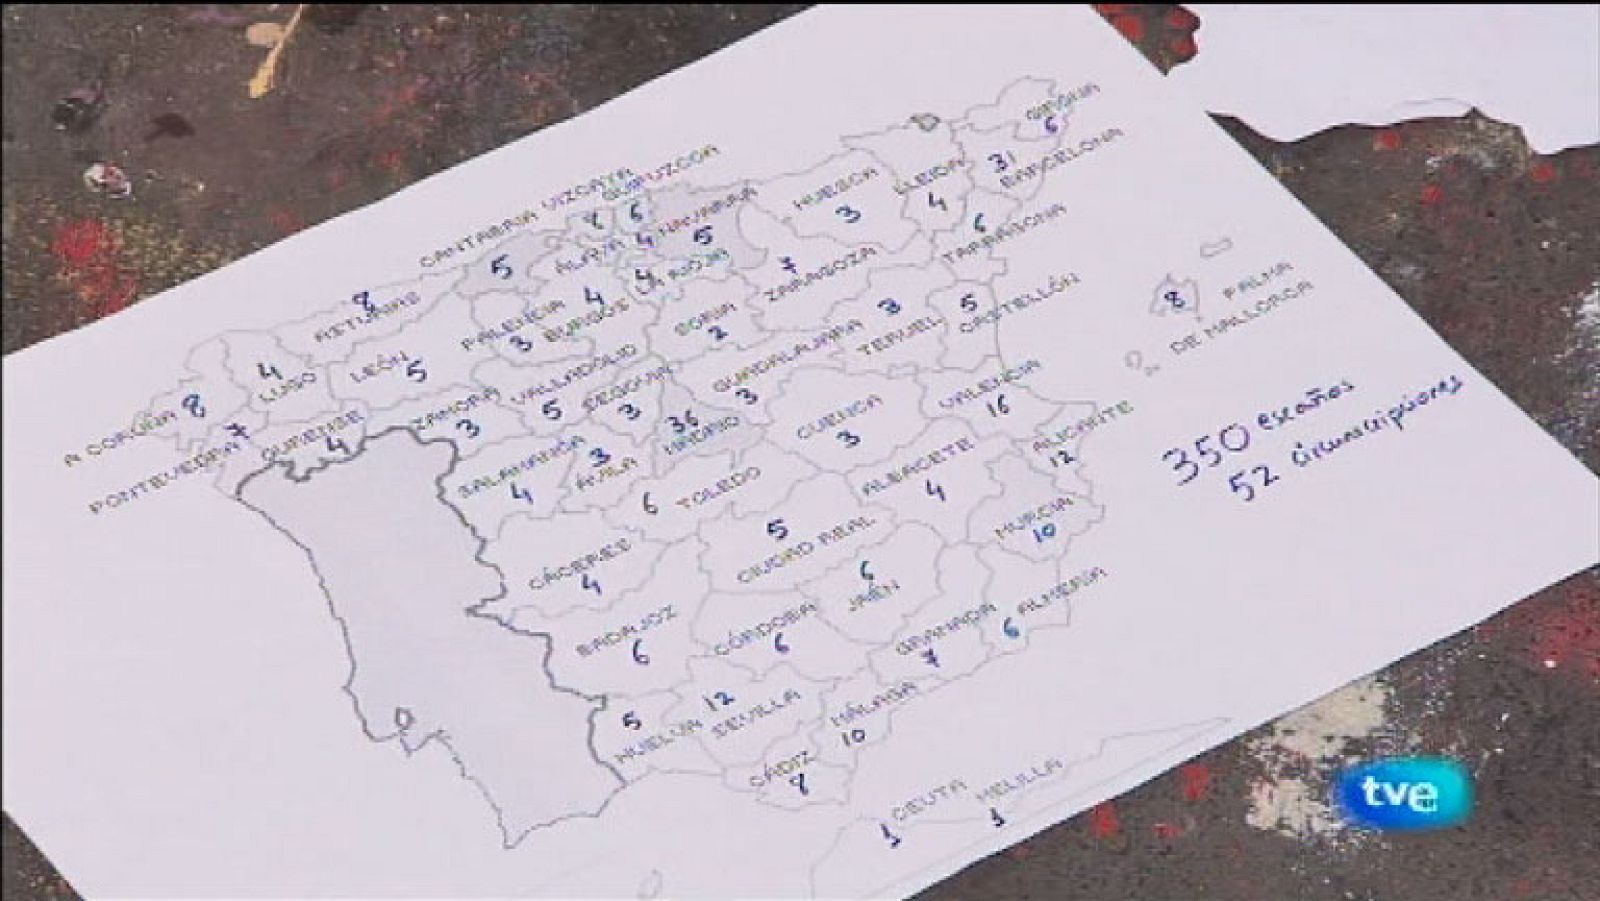 GIRONA
6
31
BARCELONA
VIZCAYA
GUIPUZCOA
CANTABRIA
8
6
NAVARRA
5
HUESCA
3
LLEIDA
4
6
TARRAGONA
ÁLAVA
4
5
LA RIOJA
4
7
ZARAGOZA
8
ASTURIAS
PALENCIA
3
4
BURGOS
SORIA
2
3
TERUEL
5
CASTELLÓN
8
PALMA
DE MALLORCA
4
LUGO
LEÓN
5
VALLADOLID
5
SEGOVIA
3
GUADALAJARA
3
A CORUÑA 8
PONTEVEDRA 7
OURENSE
4
ZAMORA
3
36
MADRID
CUENCA
3
VALENCIA
16
ALICANTE
12
350 escaños
52 circunscripciones
SALAMANCA
4
3
ÁVILA
6 TOLEDO
ALBACETE
4
5
CIUDAD REAL
MURCIA
10
CÁCERES
4
6
JAÉN
BADAJOZ
6
CÓRDOBA
6
GRANADA
7
6 ALMERÍA
5
HUELVA
12
SEVILLA
MÁLAGA
10
CÁDIZ
8
CEUTA
1
MELILLA
1
tve